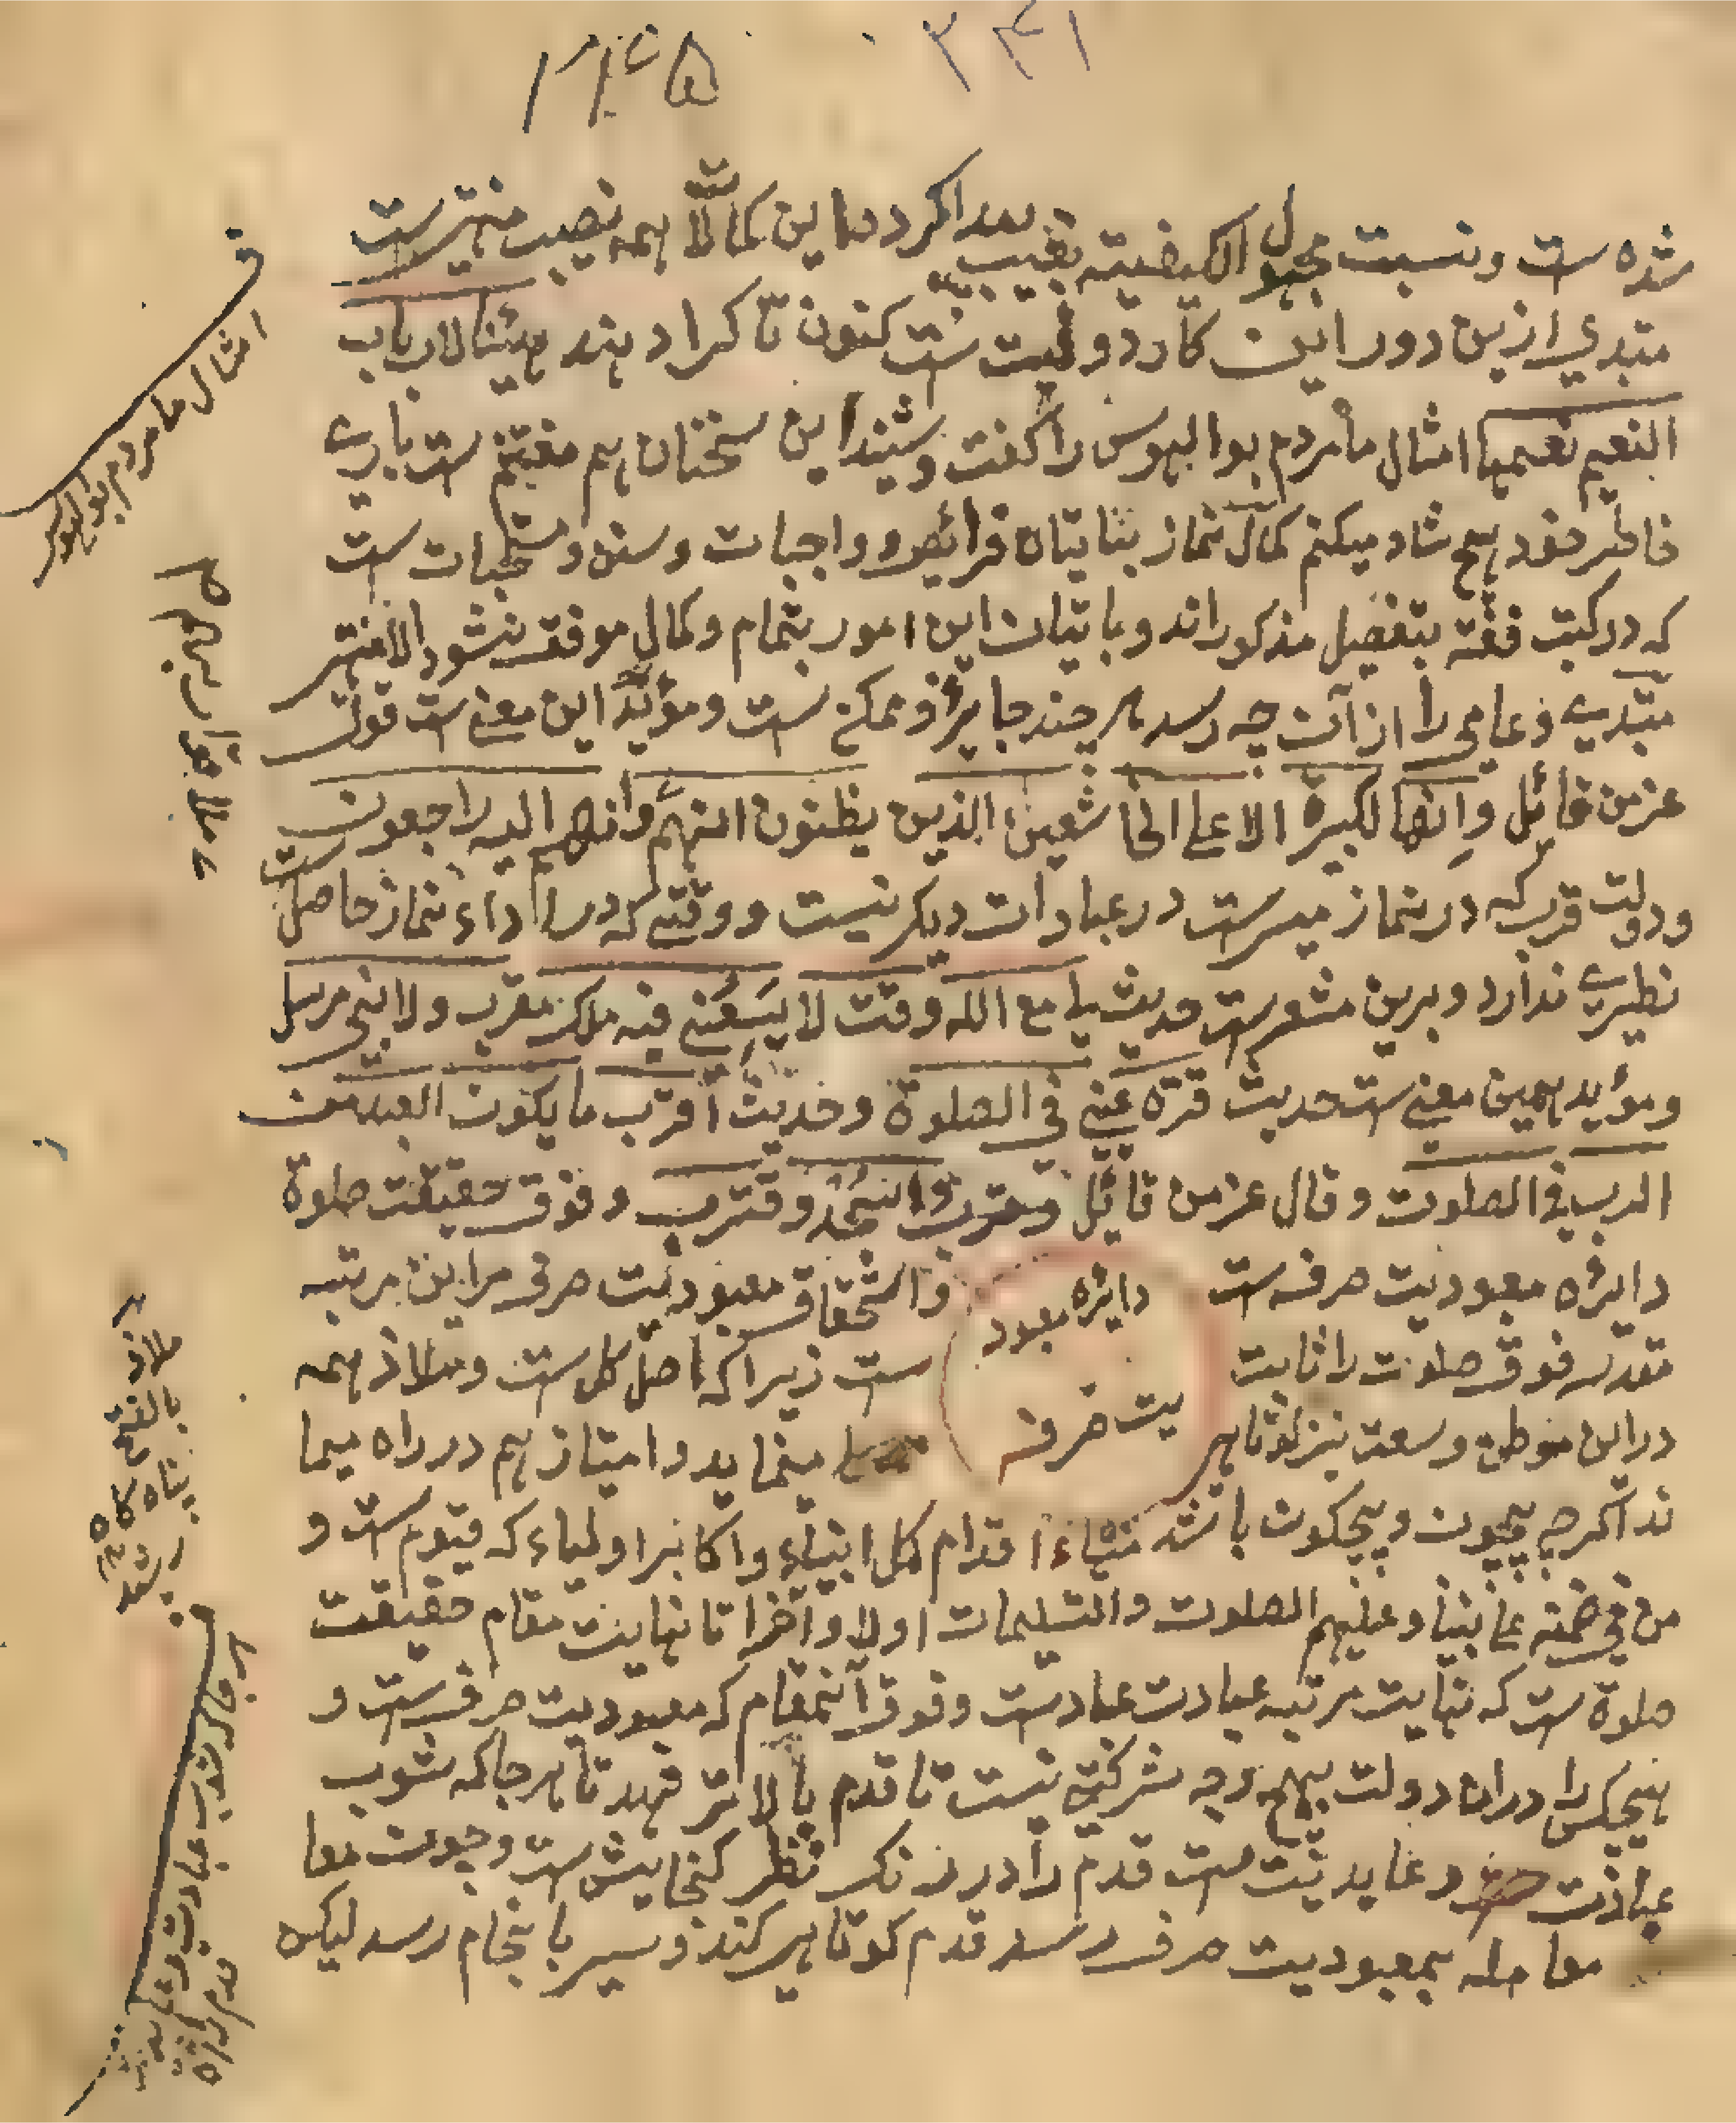 ۳۴۱
شده ست و نسبت مجهول الکیفیته بغیب پیدا کرده این کمالا همه نصیب منتهی ست
مبتدی ازین دور این کار دولیست ست کنون تا کرا دهند هیئنا لارباب
النعیم نعیمها امثال ما مردم بوالهوس را گفت و شیند این سخنان هم مغتنم ست باری
خاطر خود هیچ شاد میکنم کمال نماز بتایتان فرائض و واجبات و سنن و مستحبات ست
که در کتب فقه بتفصیل مذکور اند و باتیان این امور بتمام و کمال موفق نشود الا منتهی
مبتدی و عامی را از آن چه رسد هر چند جایز و ممکن ست و مؤید این معنی ست قول
عز من قائل وانها لکبیرة الا علی الخاشعین الذین یظنون انهم وانهم الیه راجعون
و دولت قرب که در نماز میسرست در عبادات دیگر نیست و وقتی که در اداء نماز حاصل ست
نظیری ندارد و برین مشعرست حدیث لی مع الله وقت لا یسعنی فیه ملک مقرب ولا نبی مرسل
و مؤید همین معنی ست حدیث قرة عینی فی الصلوة و حدیث اقرب ما یکون العبد من
الرب فی الصلوت و قال عز من قائل واسجد وقترب و فوق حقیقت صلوة
دایره معبودیت صرفه ست دایره معبود واستحقاق معبودیت صرف مراین مرتبه
مقدس فوق صلوت را ثابت یت صرفه ست زیرا که اصل کل ست و ملاذ همه
دراین موطن وسعت نیز کوتاهی مینماید و امتیاز هم در راه میما
ند اگرچه بیچون و بیچگون باشد منتهاء اقدام کل انبیاء و اکابر اولیاء که قیوم ست و
من فی ضمنه علی نبینا و علیهم الصلوت والتسلیمات اولا و آخرا تا نهایت مقام حقیقت
صلوة ست که نهایت مرتبه عبادت عبادست و فوق آنمقام که معبودیت صرف ست و
هیچکس را دران دولت بهیچ وجه شرکتی نیست تا قدم بالاتر نهد تا هر جا که شوب
عبادت و عابدیت ست قدم را در رنگ نظر گنجایش ست و چون معا
معامله بمعبودیت صرف رسد قدم کوتاهی کند و سیر بانجام رسد لیکن
امثال ما مردم بوالهوس
ملاذ
بالفتح
پناه گاه
رشید
هر جا که شوب عبادت و
قدم را